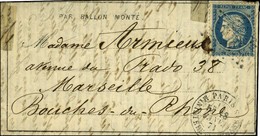 PAR BALLON MONTÉ
Madame Armieux
avenue du Prado 38
Marseille
Bouches du Rh
PARIS